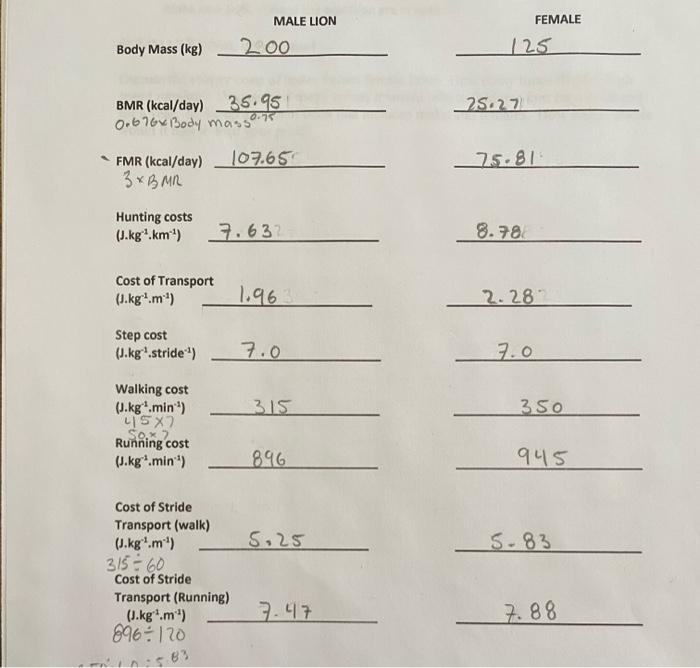 MALE LION FEMALE
Body Mass (kg) 200 125
BMR (kcal/day) 35.95 25.27
0.676 x Body mass^0.75
FMR (kcal/day) 107.65 75.81
3 x BMR
Hunting costs
(J.kg⁻¹.km⁻¹) 7.63 8.78
Cost of Transport
(J.kg⁻¹.m⁻¹) 1.96 2.28
Step cost
(J.kg⁻¹.stride⁻¹) 7.0 7.0
Walking cost
(J.kg⁻¹.min⁻¹) 315 350
45 x 7
50 x 7
Running cost
(J.kg⁻¹.min⁻¹) 896 945
Cost of Stride
Transport (walk)
(J.kg⁻¹.m⁻¹) 5.25 5.83
315 ÷ 60
Cost of Stride
Transport (Running)
(J.kg⁻¹.m⁻¹) 7.47 7.88
896 ÷ 120
5.83